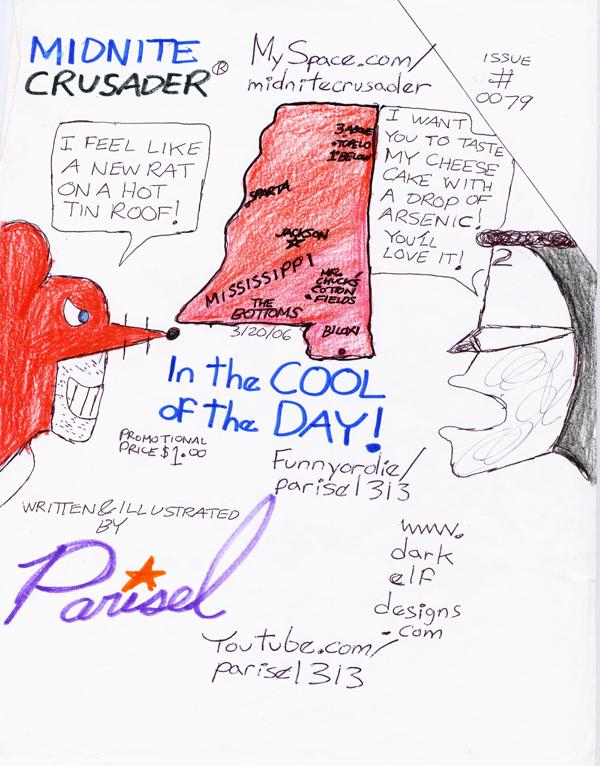 MIDNITE
CRUSADER®
MySpace.com/
midnitecrusader
ISSUE
#
0079
I FEEL LIKE
A NEW RAT
ON A HOT
TIN ROOF!
I WANT
YOU TO TASTE
MY CHEESE
CAKE WITH
A DROP OF
ARSENIC!
YOU'LL
LOVE IT!
3 ABOVE
TUPELO
1 BELOW
SPARTA
JACKSON
MISSISSIPPI
MR.
CHUCK'S
COTTON
FIELDS
THE
BOTTOMS
BILOXI
3/20/06
2
In the COOL
of the DAY!
PROMOTIONAL
PRICE $1.00
Funnyordie/
parisel313
WRITTEN & ILLUSTRATED
BY
Parisel
www.
dark
elf
designs
.com
Youtube.com/
parisel313